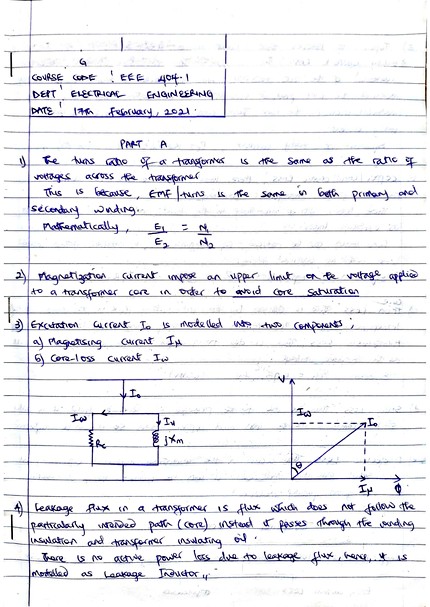 G
COURSE CODE: EEE 404.1
DEPT: ELECTRICAL ENGINEERING
DATE: 17th February, 2021.
PART A
1) The turns ratio of a transformer is the same as the ratio of
voltages across the transformer
This is because, EMF/turns is the same in both primary and
secondary winding.
Mathematically, E1/E2 = N1/N2
2) Magnetization current impose an upper limit on the voltage applied
to a transformer core in order to avoid core saturation
3) Excitation current Io is modelled into two components;
a) Magnetising current Iμ
b) Core-loss current Iω
Io
Iω
Iμ
Rc
jXm
V
Iω
Io
θ
Iμ
Φ
4) Leakage flux in a transformer is flux which does not follow the
particularly intended path (core) instead it passes through the winding
insulation and transformer insulating oil.
There is no active power loss due to leakage flux, hence, it is
modelled as Leakage Inductor,,